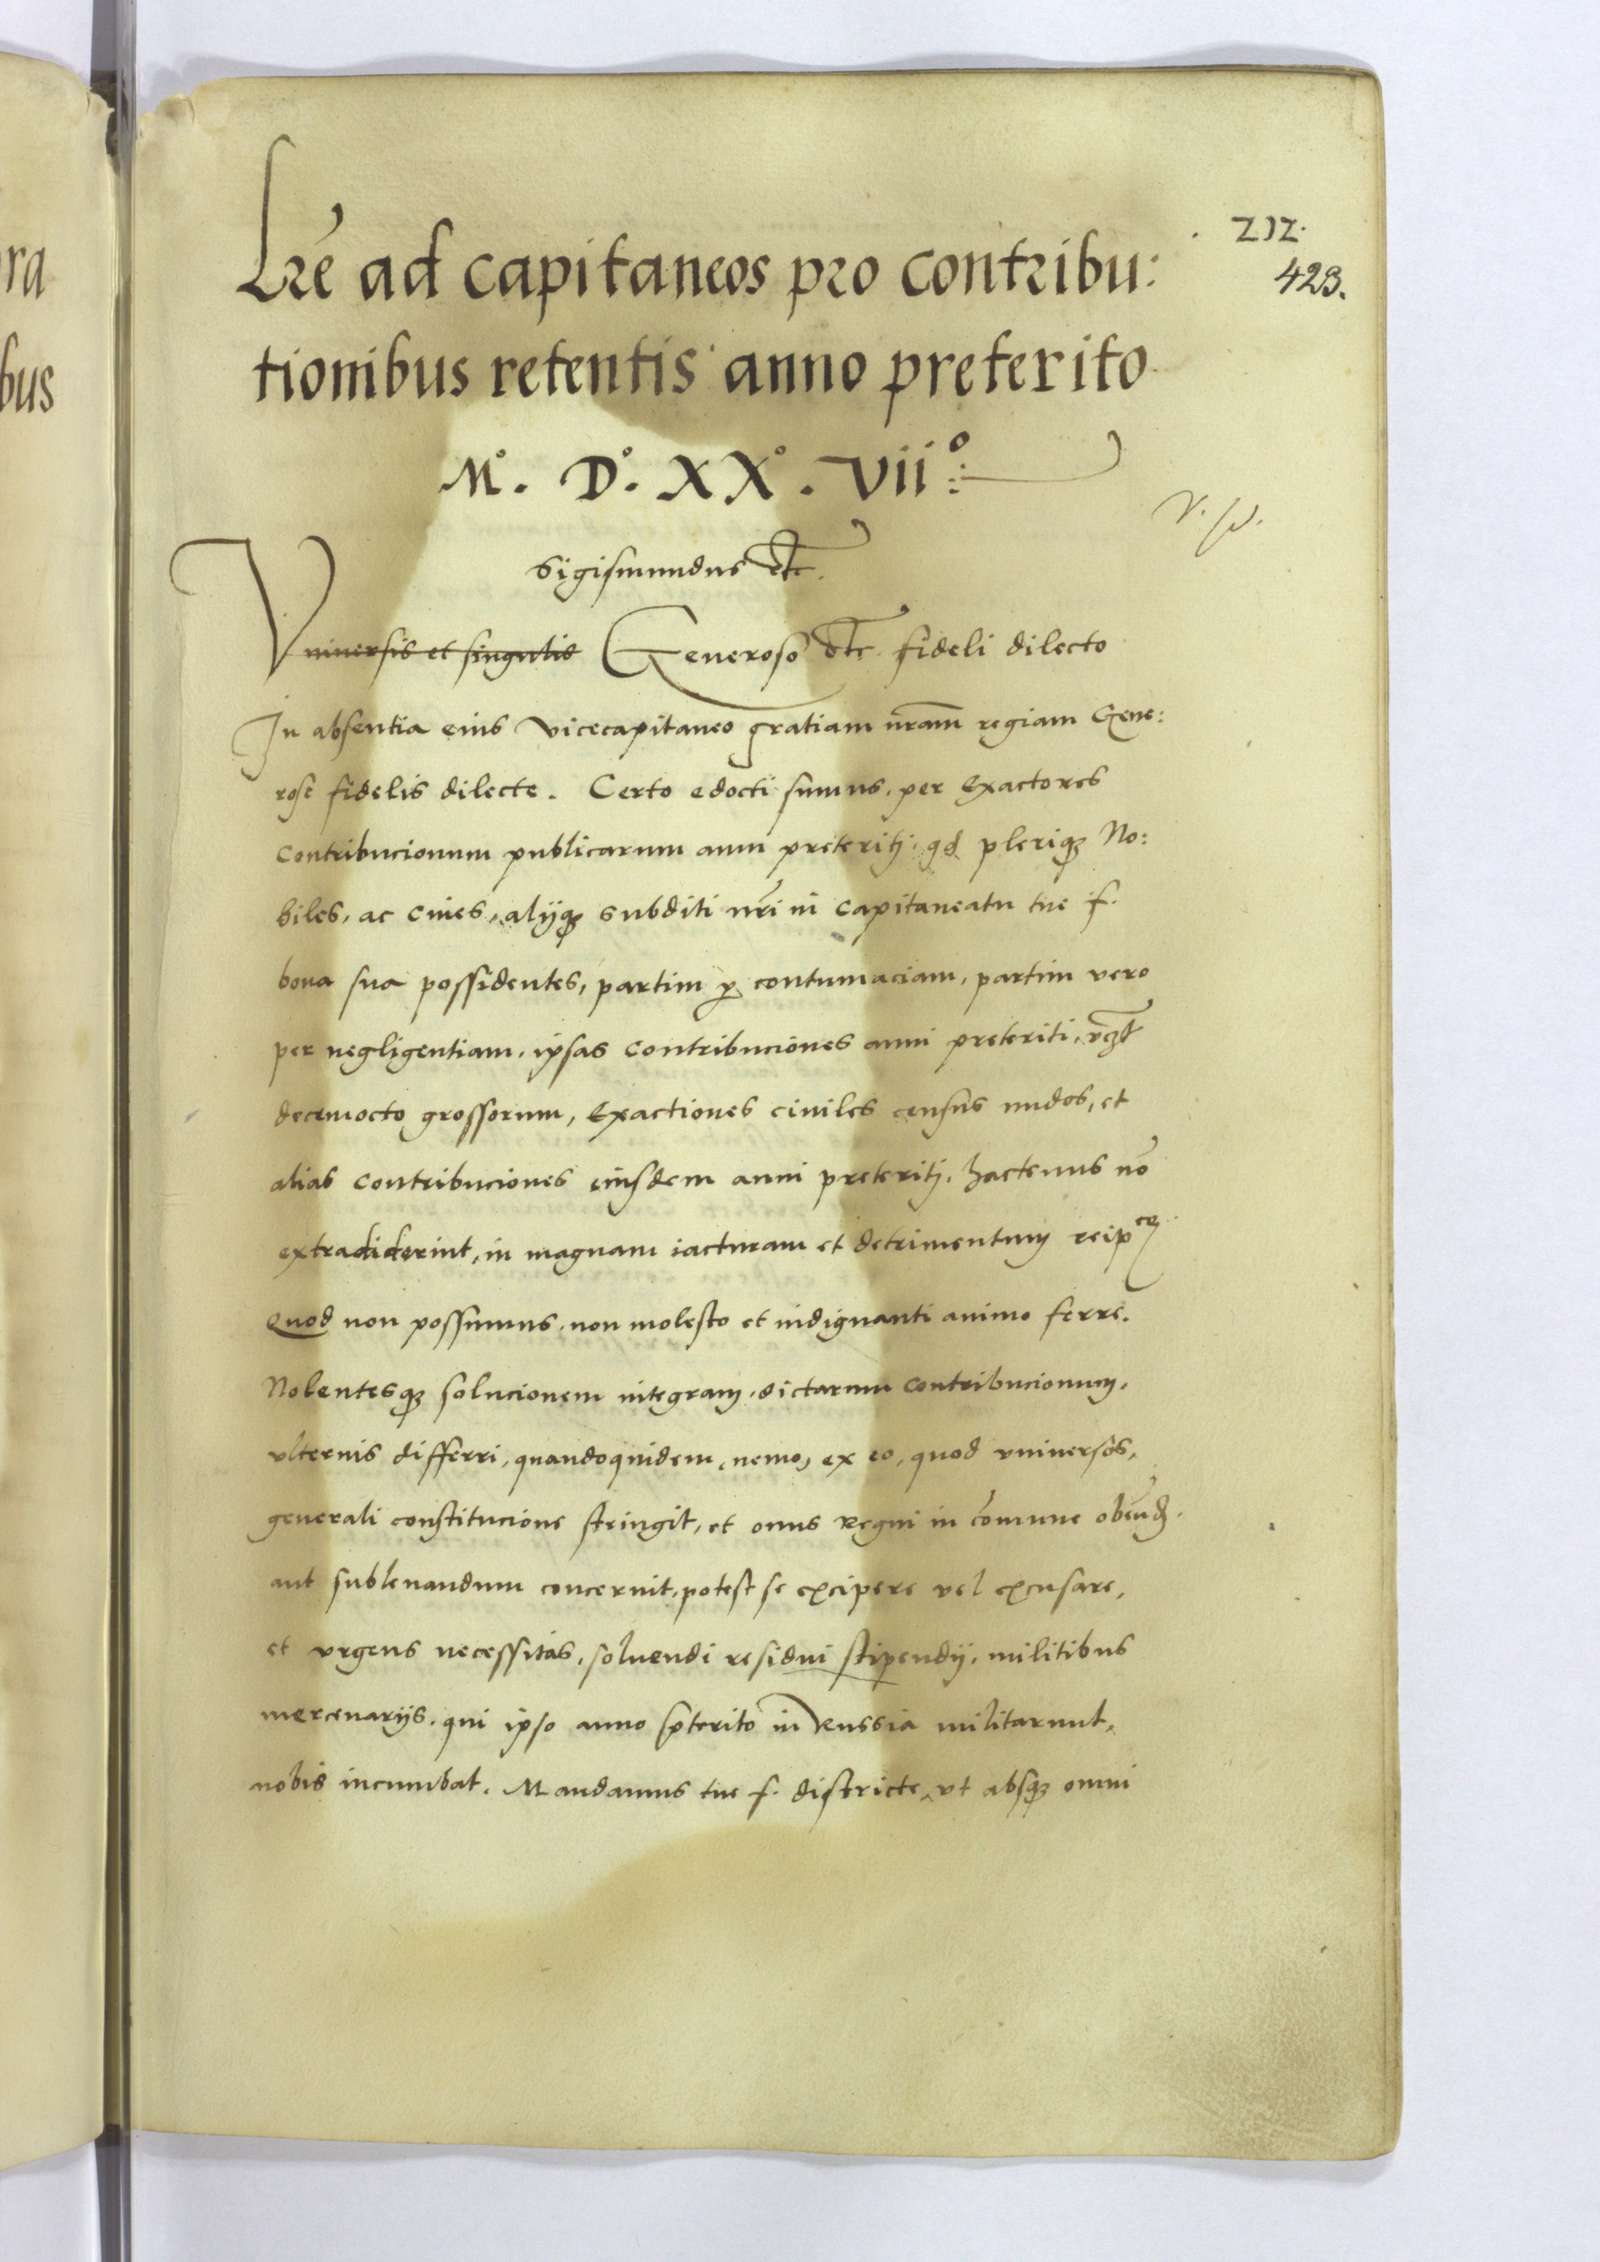 212.
423.
Lre ad capitaneos pro contribu:
tionibus retentis anno preterito
M°. D°. XX°. Vii°:
Sigismundus etc.
Vniversis et singulis Generoso etc. fideli dilecto
In absentia eius vicecapitaneo gratiam nram regiam Gene:
rose fidelis dilecte. Certo edocti sumus, per Exactores
contribucionum publicarum anni preteritj, qd pleriq; No:
biles, ac cives, alijq; subditi nri in capitaneatu tue f.
bona sua possidentes, partim p contumaciam, partim vero
per negligentiam, ipsas contribuciones anni preteriti,
decemocto grossorum, Exactiones civiles census nudos, et
alias contribuciones eiusdem anni preteritj, hactenus no
extradiderint, in magnam iacturam et detrimentum reip ce
Quod non possumus, non molesto et indignanti animo ferre.
Nolentesq; solucionem integram, dictarum contribucionum,
vlterius differri, quandoquidem, nemo, ex eo, quod vniversos,
generali constitucione stringit, et onus Regni in comune obeund
aut sublevandum concernit, potest se excipere vel excusare,
et vrgens necessitas, solvendi residui stipendij, militibus
mercenarijs, qui ipso anno pterito in Russia militarunt,
nobis incumbat. Mandamus tue f. districte, vt absq; omni